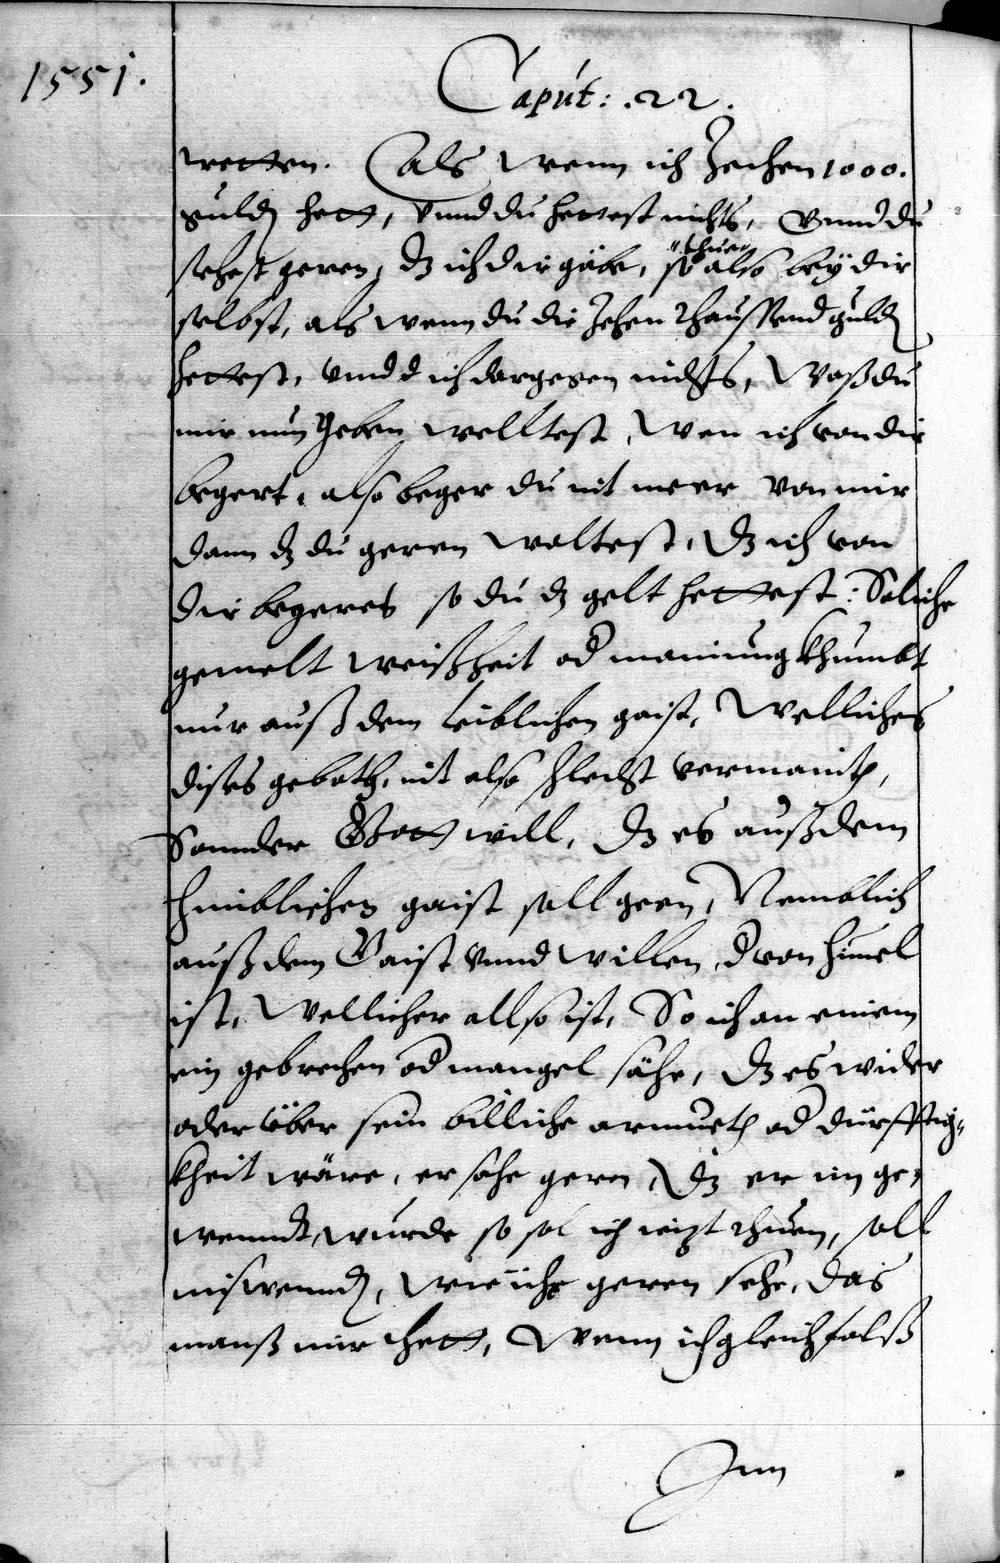 1551.
Caput: .22.
wetten. (als wenn ich Zechen 1000.
guld hett, vnnd du hettest nichts, Vnnd du
sehest geren, dz ich dir gäbe, so also bey dir
thuen
selbst, als wenn du die Zehen thaussend guld
hettest, vnnd ich dargegen nichts, Waß du
mir nun geben welltest, Wen ich von dir
begert, also beger du nit meer von mir
dann dz du geren woltest, dz ich von
dir begeres so du dz gelt hettest: Soliche
gemelt weißheit od mainung khumbt
nur auß dem leiblichen gaist, Welliches
dises geboth, nit also schlecht vermainth,
Sonnder Gott will, dz es auß dem
himblischen gaist soll geen, Nemblich
auß dem Gaist vnnd willen, d von himel
ist, Wellicher allso ist, So ich an einem
ein gebrechen od mangel sähe, dz es wider
oder über sein billiche armueth od dürfftig-
kheit wäre, er sahe gern, dz er im ge-
wenndt wurde so sol ich ietzt thuen, soll
wie ichs geren sehe, das
manß mir thett, Wenn ich gleichfalß
Inn